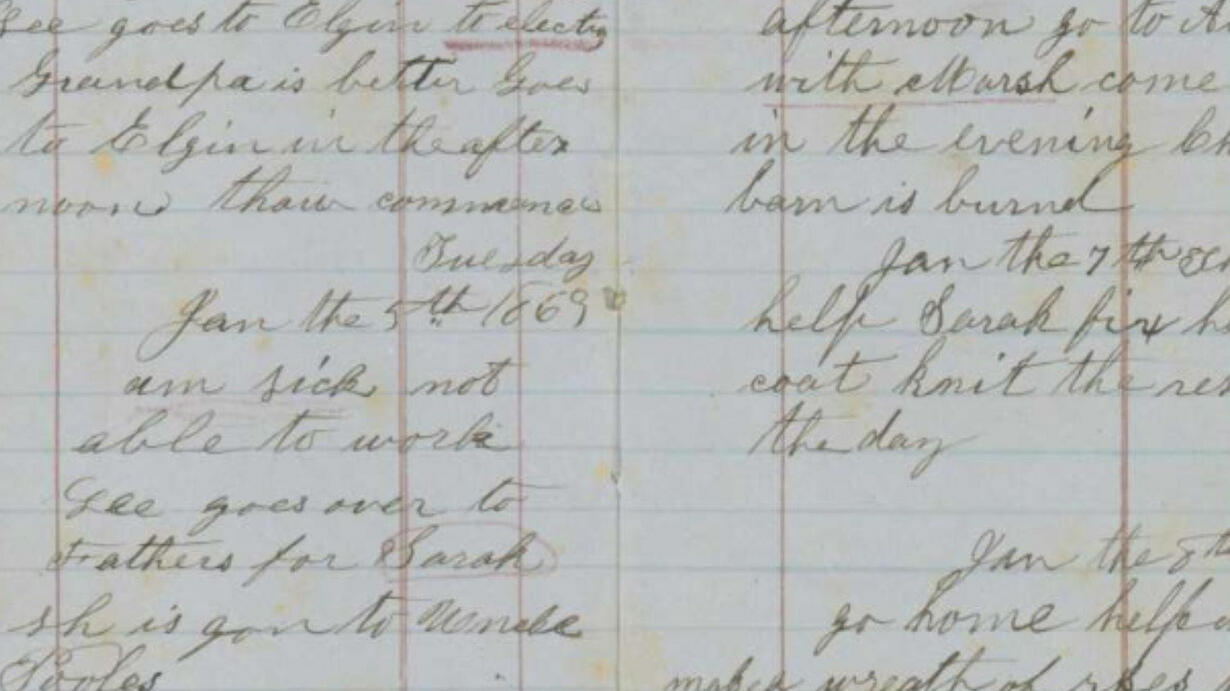 Lee goes to Elgin to electig
Grandpa is better Goes
to Elgin in the after
noon thaw commences
Tuesday
Jan the 5th 1869
am sick not
able to work
Lee goes over to
Fathers for Sarah
sh is gon to Uncle
Pooles
afternoon go to
with Marsh come
in the evening
barn is burnd
Jan the 7th
help Sarah fix
coat knit the
the day
Jan the 8th
go home help
make wreath of